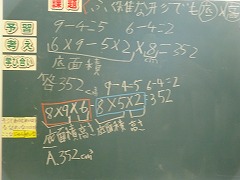 課題 ふくざつな形でも 底 × 
予習
考え
学び合い
9-4=5 6-4=2
(6×9-5×2)×8=352
底面積
答352cm³ 9-4=5 6-4=2
8×9×6 - 8×5×2=352
底面積 高さ 底面積 高さ
A.352cm³